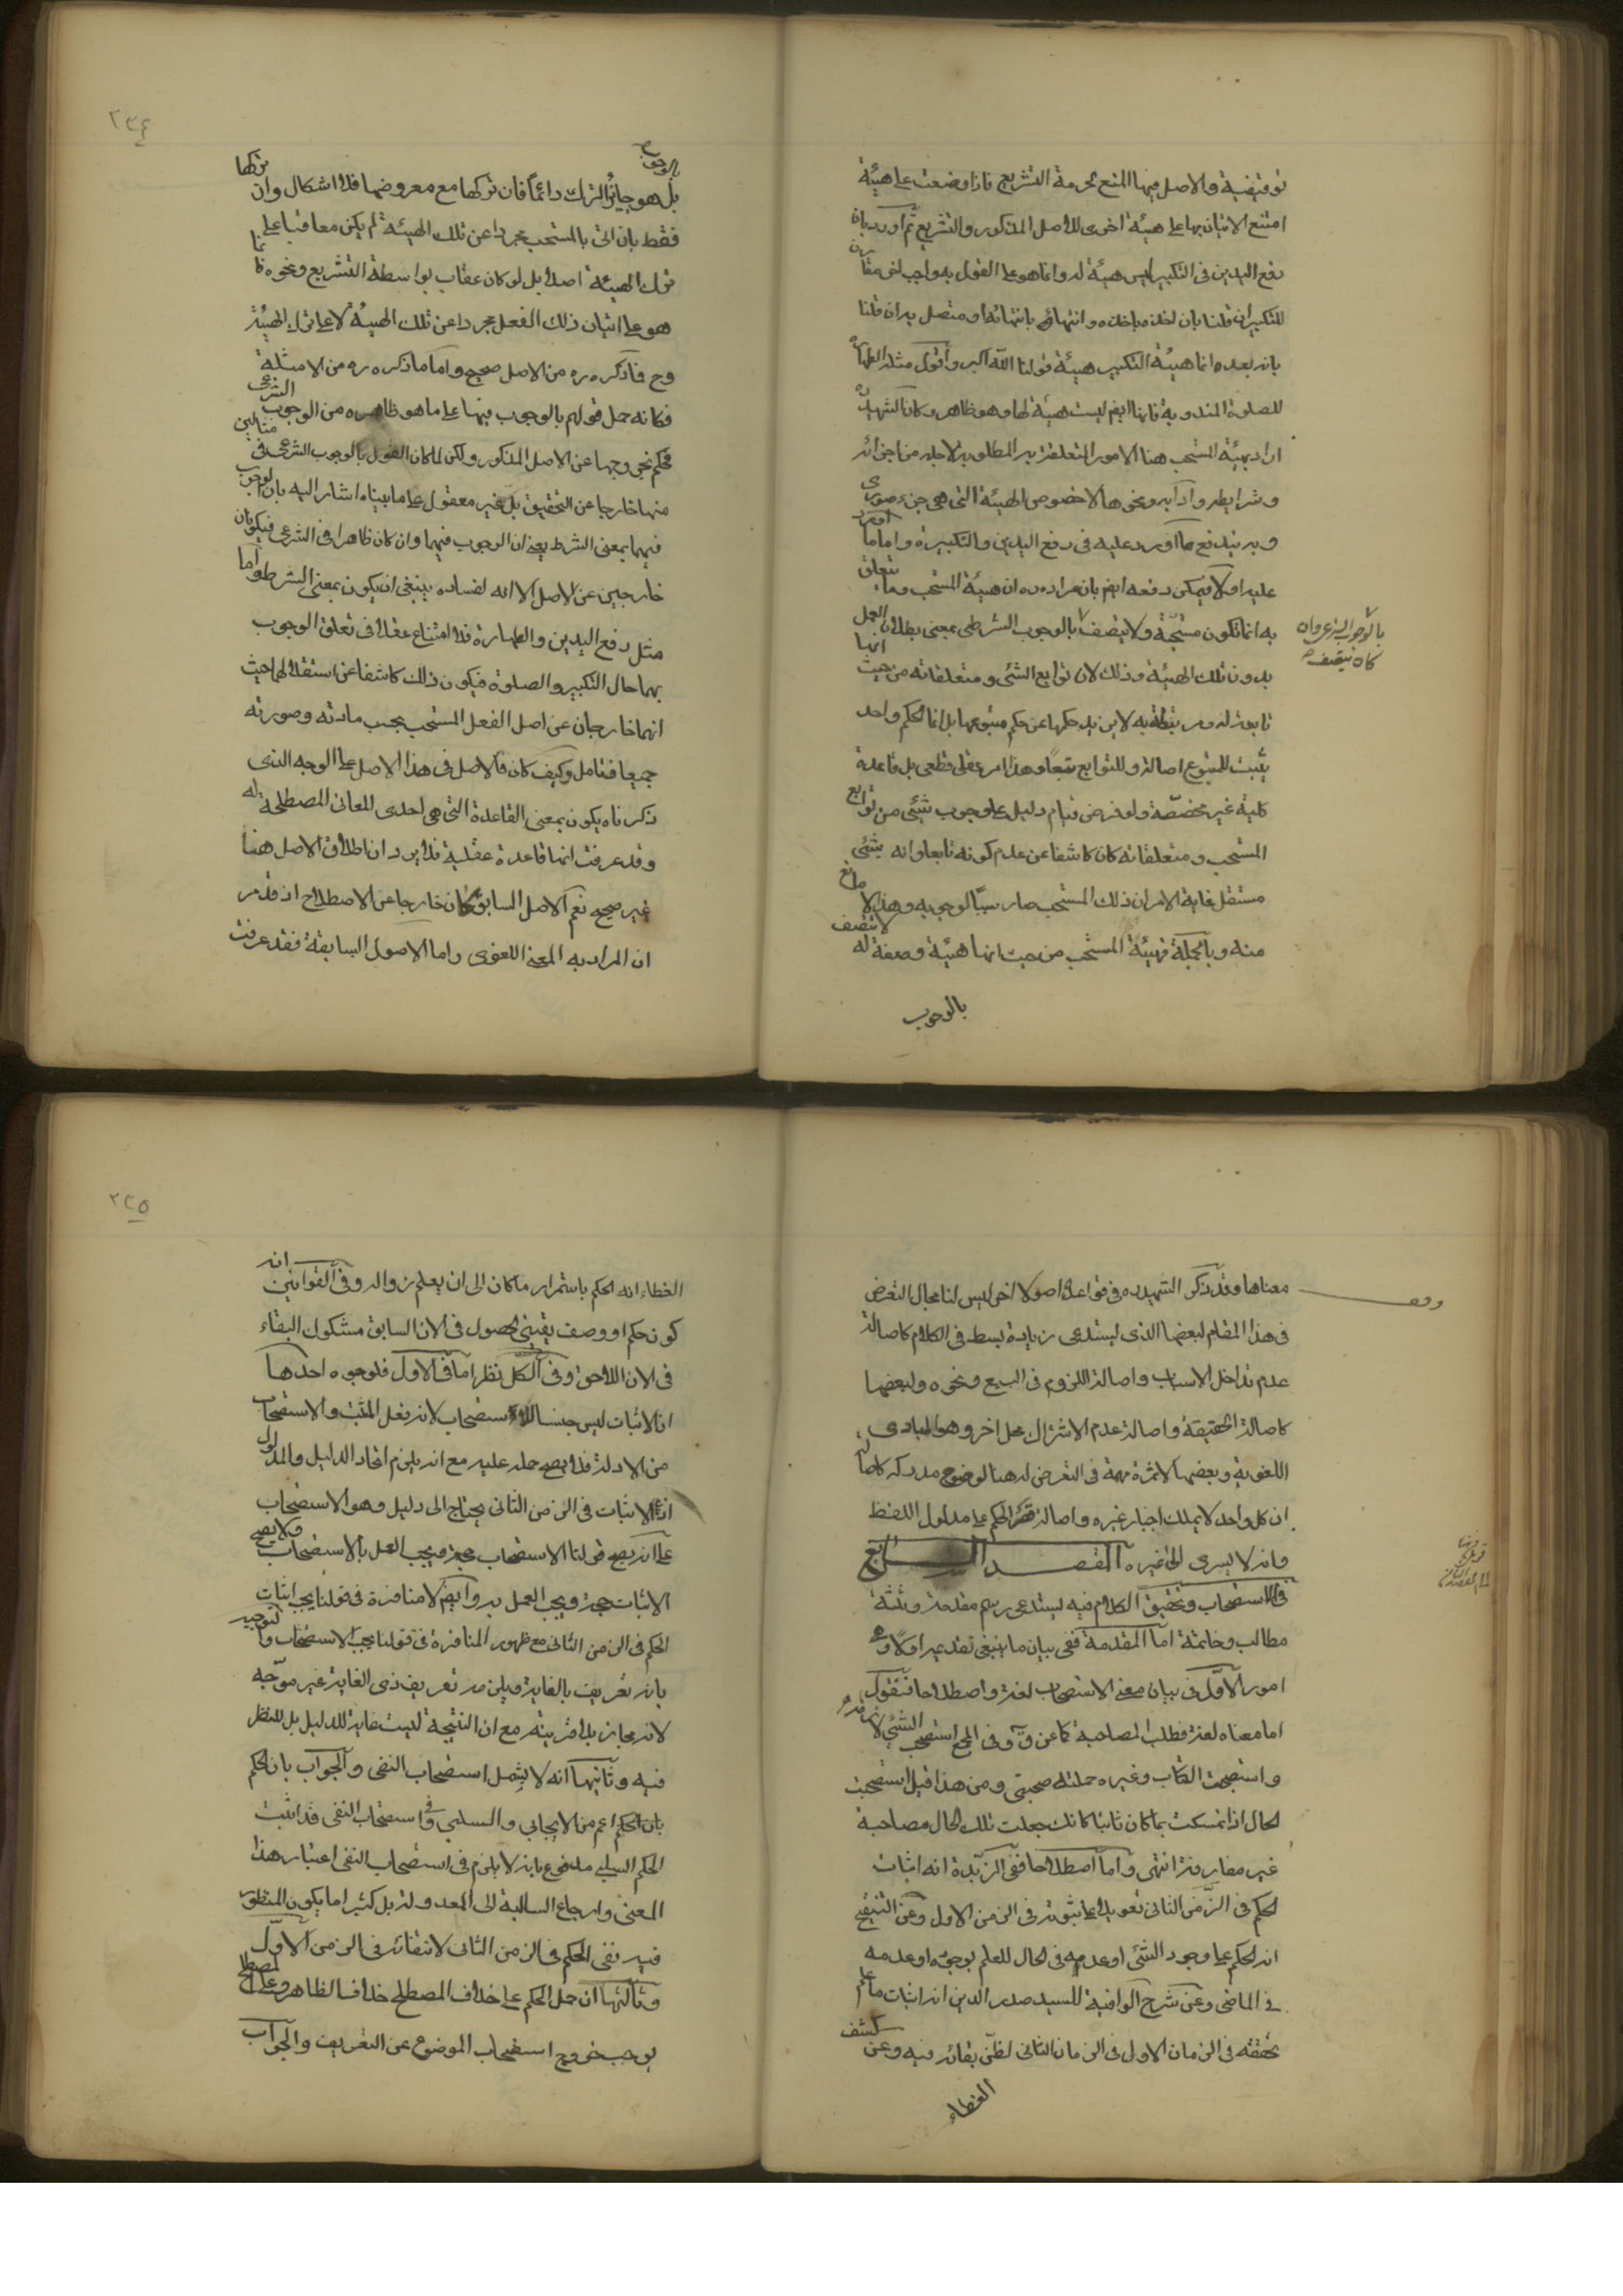 توقيفية والاصل فيها المنع لحرمة التشريع فاذا وضعت على هيئة
امتنع الاتيان بها على هيئة اخرى للاصل المذكور والتشريع ثم اورد بان
رفع اليدين فى التكبير ليس هيئة له وانما هو على القول به واجب لنفى مقارن
للتكبير ان قلنا بان اخذه باخذه وانتهائه بانتهائه او متصل به ان قلنا
بانه بعده انما هيئة التكبير هيئة قولنا الله اكبر واقول مثله الطهارة
للصلوة المندوبة فانها ايضم ليست هيئة لها وهو ظاهر وكان الشهيد ره
اراد بهيئة المستحب هنا الامور المتعلقة به المطلوبة لاجله من اجزائه
وشرايطه وآدابه ونحوها لا خصوص الهيئة التى هى جزء صورى
وبه يندفع ما اورد عليه فى رفع اليدين والتكبيرة واما ما اورد
عليه اولا فيمكن دفعه ايضم بان مراده ره ان هيئة المستحب وما يتعلق
به انما تكون مستحبة ولا يتصف بالوجوب الشرطى بمعنى بطلان العمل
بالوجوب الشرعى وان
كان يتصف
بدون تلك الهيئة وذلك لان توابع الشئ ومتعلقاته من حيث انها
تابعة له ومرتبطة به لا يزيد حكمها عن حكم متبوعها بل انما الحكم واحد
يثبت للمتبوع اصالة وللتوابع تبعا وهذا امر عقلى قطعى بل قاعدة
كلية غير مخصصة ولو فرض قيام دليل على وجوب شيئ من توابع
المستحب ومتعلقاته كان كاشفا عن عدم كونه تابعا وانه شيئ
مستقل غاية الامر ان ذلك المستحب صار سببا لوجوبه وهذا لا مانع
منه وبالجملة فهيئة المستحب من حيث انها هيئة وصفة له لا تتصف
بالوجوب
٢٣٤
بالوجوب
بل هو جايز الترك دائما فان تركها مع معروضها فلا اشكال وان تركها
فقط بان اتى بالمستحب مجردا عن تلك الهيئة لم يكن معاقبا على
ترك الهيئة اصلا بل لو كان عقاب بواسطة التشريع ونحوه فانما
هو على اتيان ذلك الفعل مجردا عن تلك الهيئة لا على ترك الهيئة
وح فما ذكره ره من الاصل صحيح واما ما ذكره ره من الامثلة
فكانه حمل قولهم بالوجوب فيها على ما هو ظاهره من الوجوب الشرعى
فحكم بخروجها عن الاصل المذكور ولكن لما كان القول بالوجوب الشرعى فى مثالين
منها خارجا عن التحقيق بل غير معقول على ما بيناه اشار اليه بان الوجوب
فيهما بمعنى الشرط يعنى ان الوجوب فيهما وان كان ظاهرا فى الشرعى فيكونان
خارجين عن الاصل الا انه لفساده ينبغى ان يكون بمعنى الشرط واما
مثل رفع اليدين والطهارة فلا امتناع عقلا فى تعلق الوجوب
بهما حال التكبير والصلوة فيكون ذلك كاشفا عن استقلالهما حيث
انهما خارجان عن اصل الفعل المستحب بحسب مادته وصورته
جميعا فتامل وكيف كان فالاصل فى هذا الاصل على الوجه الذى
ذكرناه يكون بمعنى القاعدة التى هى احدى المعانى المصطلحة له
وقد عرفت انها قاعدة عقلية فلا يرد ان اطلاق الاصل هنا
غير صحيح نعم الاصل السابق كان خارجا عن الاصطلاح اذ قد مر
ان المراد به المعنى اللغوى واما الاصول السابقة فقد عرفت
معناها وقد ذكر الشهيد ره فى قواعده اصولا اخر ليس لنا مجال التعرض
فى هذا المقام لبعضها الذى ليستدعى زيادة بسط فى الكلام كاصالة
عدم تداخل الاسباب واصالة اللزوم فى البيع ونحوه ولبعضها
كاصالة الحقيقة واصالة عدم الاشتراك محل اخر وهو المبادى
اللغوية وبعضها لا ثمرة مهمة فى التعرض له هنا لوضوح مدركه كاصالة
ان كل واحد لا يملك اجبار غيره واصالة قصر الحكم على مدلول اللفظ
وانه لا يسرى الى غيره المقصد الرابع
فى الاستصحاب وتحقيق الكلام فيه ليستدعى رسم مقدمة وثلثة
مطالب وخاتمة اما المقدمة ففى بيان ما ينبغى تقديمه اولا وفيه
امور الاول فى بيان معنى الاستصحاب لغة واصطلاحا فنقول
اما معناه لغة فطلب المصاحبة كما عن ق وفى المجمع استصحب الشئ لازمه
واستصحبت الكتاب وغيره حملته صحبتى ومن هذا قيل استصحبت
الحال اذا تمسكت بما كان ثابتا كانك جعلت تلك الحال مصاحبة
غير مفارقة انتهى واما اصطلاحا ففى الزبدة انه اثبات
الحكم فى الزمن الثانى تعويلا على ثبوته فى الزمن الاول وعن التنقيح
انه الحكم على وجود الشئ او عدمه فى الحال للعلم بوجوده او عدمه
فى الماضى وعن شرح الوافية للسيد صدر الدين انه اثبات ما علم
تحققه فى الزمان الاول فى الزمان الثانى لظن بقائه فيه وعن كشف
الغطاء
٢٣٥
الغطاء انه الحكم باستمرار ما كان الى ان يعلم زواله وفى القوانين انه
كون حكم او وصف يقينى الحصول فى الان السابق مشكوك البقاء
فى الان اللاحق وفى الكل نظر اما فى الاول فلوجوه احدها
ان الاثبات ليس جنسا للاستصحاب لانه فعل المثبت والاستصحاب
من الادلة فلا يصح حمله عليه مع انه يلزم اتحاد الدليل والمدلول
اذ الاثبات فى الزمن الثانى يحتاج الى دليل وهو الاستصحاب
على انه يصح قولنا الاستصحاب حجة ويجب العمل بالاستصحاب ولا يصح
الاثبات حجة ويجب العمل به وايضم لا منافرة فى قولنا يجب اثبات
الحكم فى الزمن الثانى مع ظهور المنافرة فى قولنا يجب الاستصحاب والتوجيه
بانه تعريف بالغاية فيلزمه تعريف ذى الغاية غير موجه
لانه مجاز بلا قرينة مع ان النتيجة ليست غاية للدليل بل للنظر
فيه وثانيها انه لا يشمل استصحاب النفى والجواب بان الحكم
بان الحكم اعم من الايجابى والسلبى وفى استصحاب النفى قد اثبت
الحكم السلبى مدفوع بانه لا يلزم فى استصحاب النفى اعتبار هذا
المعنى وارجاع السالبة الى المعدولة بل كثيرا ما يكون المنظور
فيه نفى الحكم فى الزمن الثانى لانتفائه فى الزمن الاول
وثالثها ان حمل الحكم على خلاف المصطلح خلاف الظاهر وعلى المصطلح
يوجب خروج استصحاب الموضوع عن التعريف والجواب